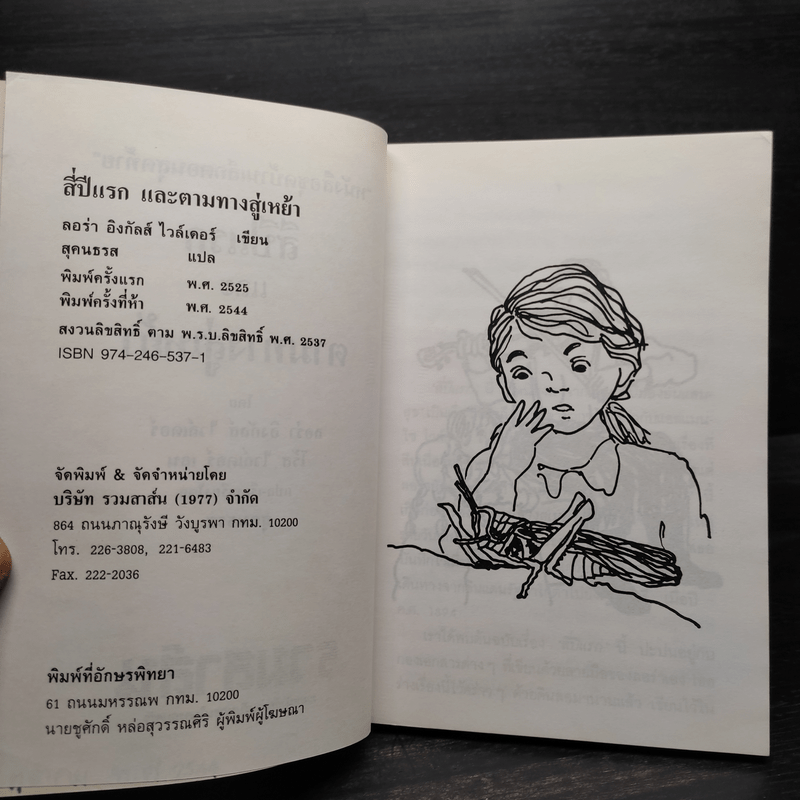 สี่ปีแรก และตามทางสู่เหย้า
ลอร่า อิงกัลส์ ไวล์เดอร์ เขียน
สุคนธรส แปล
พิมพ์ครั้งแรก พ.ศ. 2525
พิมพ์ครั้งที่ห้า พ.ศ. 2544
สงวนลิขสิทธิ์ ตาม พ.ร.บ.ลิขสิทธิ์ พ.ศ. 2537
ISBN 974-246-537-1
จัดพิมพ์ & จัดจำหน่ายโดย
บริษัท รวมสาส์น (1977) จำกัด
864 ถนนภาณุรังษี วังบูรพา กทม. 10200
โทร. 226-3808, 221-6483
Fax. 222-2036
พิมพ์ที่อักษรพิทยา
61 ถนนมหรรณพ กทม. 10200
นายชูศักดิ์ หล่อสุวรรณศิริ ผู้พิมพ์ผู้โฆษณา